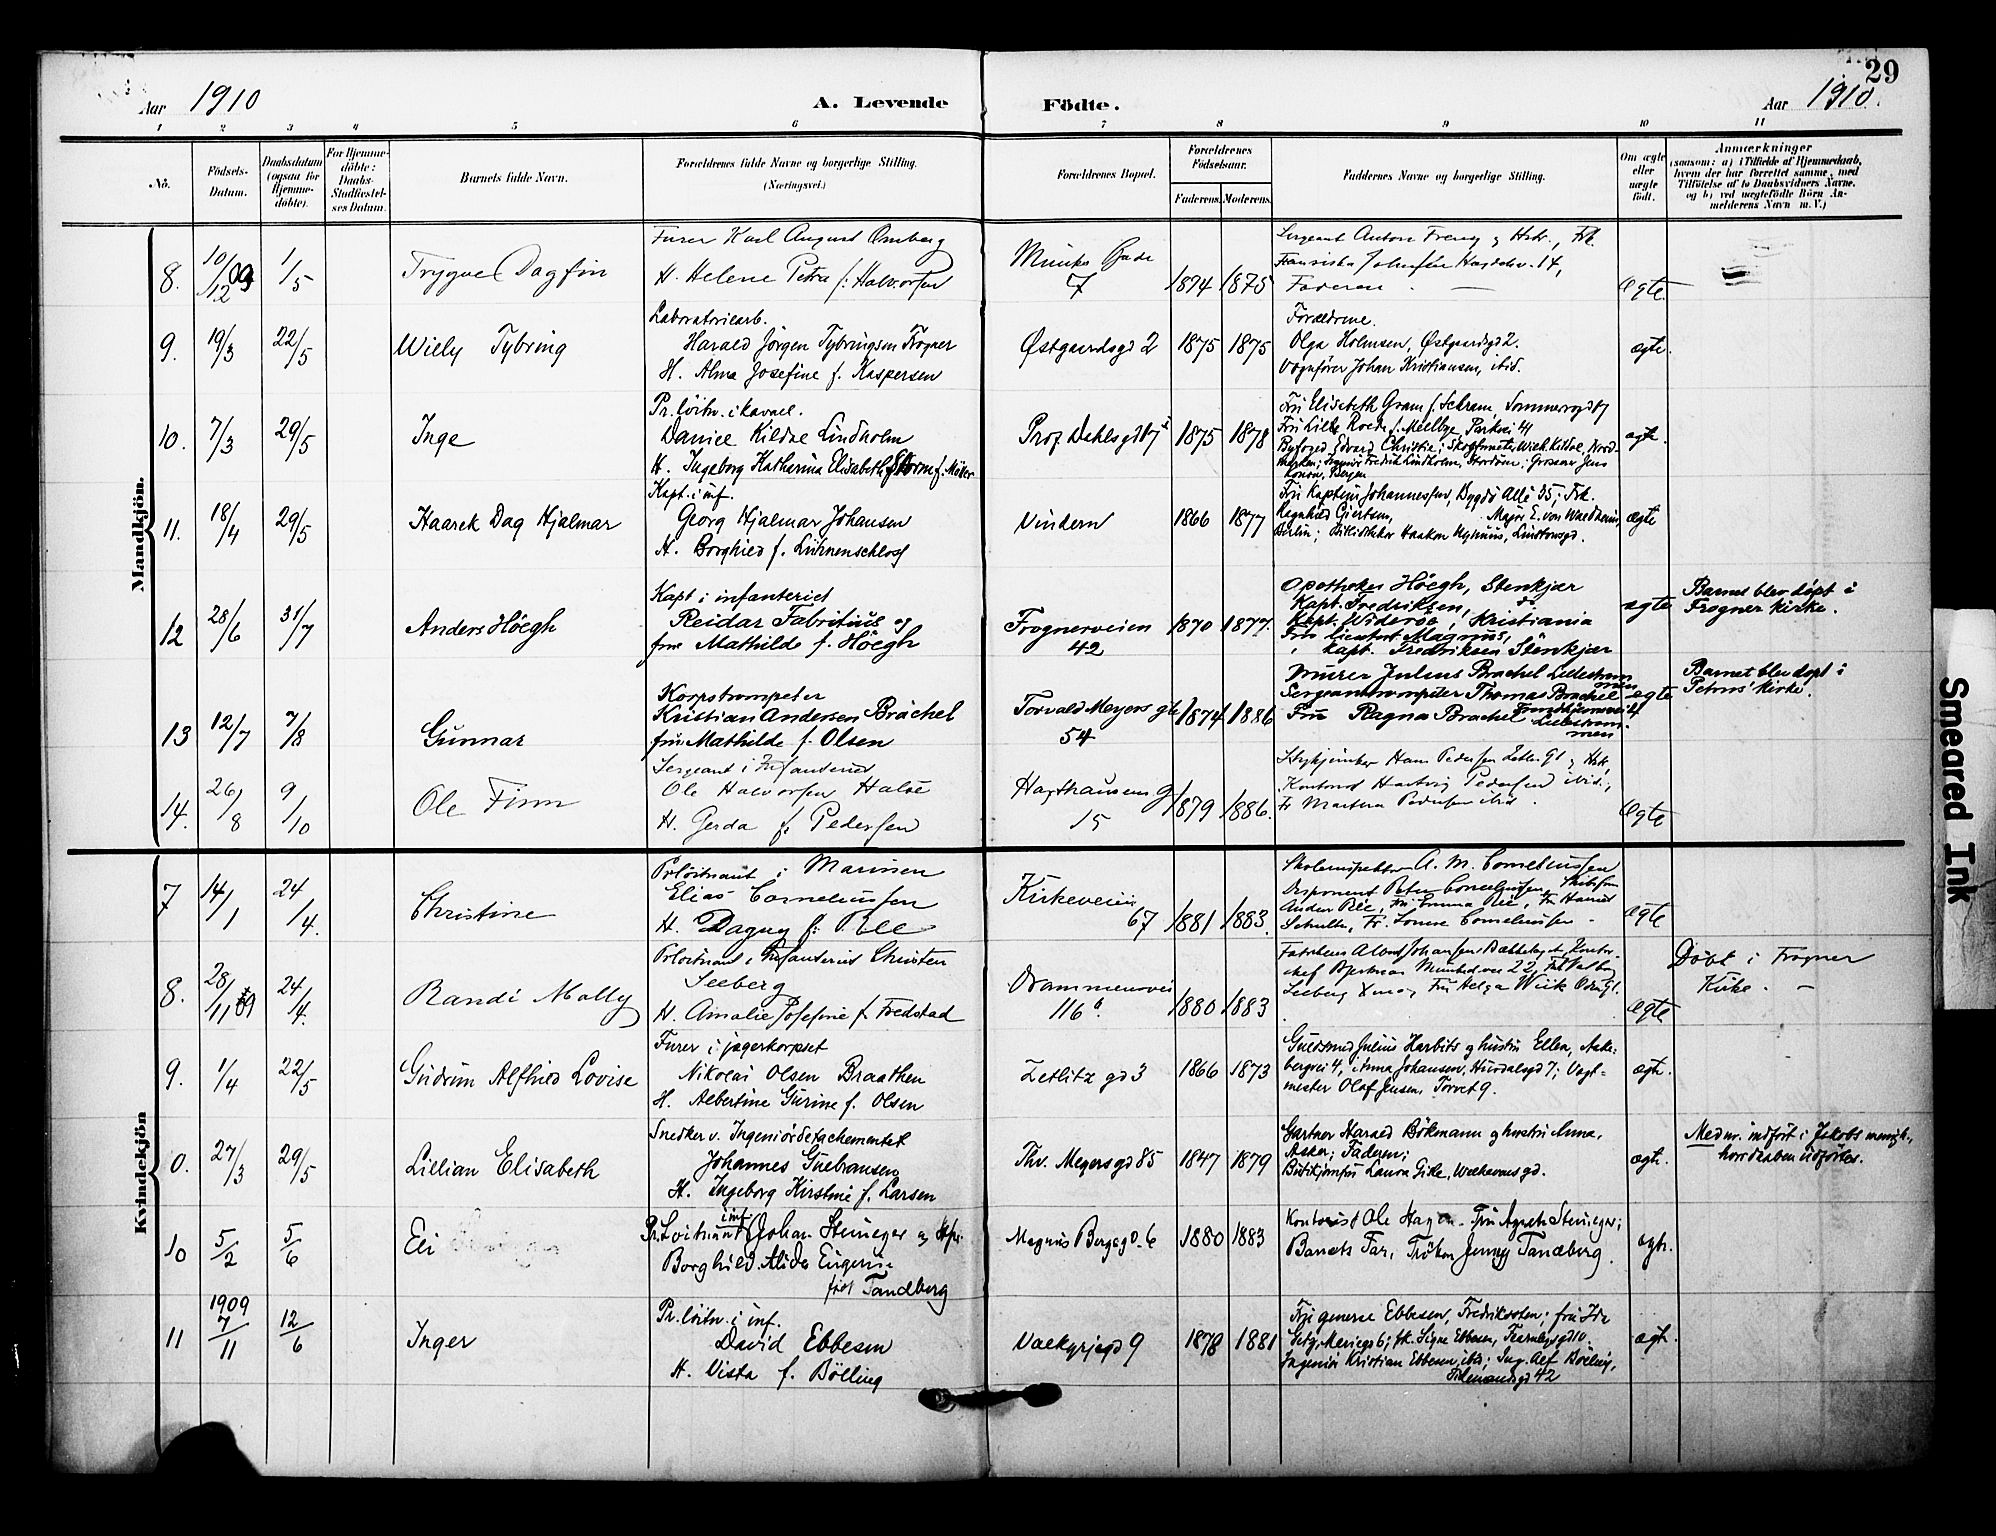 29
Aar 1910
A. Levende
Födte.
Aar 1910.
1 2 3 4 5 6 7 8 9 10 11
No.
Födsels-
Datum.
Daabsdatum
(ogsaa for
Hjemme-
döbte).
For Hjemme-
döbte:
Daabs-
Stadfæstel-
ses Datum.
Barnets fulde Navn.
Forældrenes fulde Navne og borgerlige Stilling.
(Næringsvei.)
Forældrenes Bopæl.
Forældrenes
Födselsaar.
Faderens. Moderens.
Faddernes Navne og borgerlige Stilling.
Om ægte
eller
uægte
födt.
Anmærkninger
(saasom: a) i Tilfælde af Hjemmedaab,
hvem der har forrettet samme, med
Tilföielse af to Daabsvidners Navne,
og b) ved uægtefödte Börn An-
melderens Navn m. V.)
Mandkjön.
8. 10/12 09 1/5 Trygve Dagfin
Furer Karl August Omberg
H. Helene Petra f. Halvorsen
Munkedams
7
1874 1875
Sergeant Anton
Faderen
Ægte
9. 19/3 22/5 Willy Tybring
Laboratoriearb.
Harald Jörgen Tybringsen Trogner
H. Alma Josefine f. Kaspersen
Østgaardsgd 2
1875 1875
Forældrene.
Olga Holmsen, Østgaardsgd 2.
Vognfører Johan Kristiansen, ibid.
ægte.
10. 7/3 29/5 Inge
Pr. löitn. i kavael.
Daniel Kildal Lindholm
H. Ingeborg Katharina Elisabeth Storm f. Möller
Prof. Dahlsgd 17
1875 1878
Fru Elisabeth Gram f. Schram, Sommerrogd
Fru Lilli Roede f. Mellbye, Parkvei 4
Byfoged Edvard Christie; Wilh. Kildal, Nord-
marken; Ingeniör Fredrik Lindholm, Stordöen; Grosser Jens
Bergen
ægte.
11. 18/4 29/5 Haarek Dag Hjalmar
Kapt. i inf.
Georg Hjalmar Johansen
H. Borghild f. Lühnenschloss
Vindern
1866 1877
Fru Kaptein Johannessen, Bygdö Allé 35; Frk.
Ragnhild Giertsen, Major E. von Waldheim,
Berlin; Bibliotekar Haakon Nyhuus, Lindtowsgd.
ægte
12 28/6 31/7 Anders Höegh
Kapt i infanteriet
Reidar Fabritius og
fru Mathilde f. Höegh
Frognerveien
42
1870 1877.
Apotheker Höegh, Stenkjær
Kapt. Fredriksen, do
Kapt. Wideröe, Kristiania
Fru lieutnt Magnus,
" kapt. Fredriksen Stenkjær
ægte
Barnet blev döpt i
Frogner kirke.
13 12/7 7/8 Gunnar
Korpstrompeter
Kristian Andersen Brachel
fru Mathilde f. Olsen
Torvald Meyers gt
54
1874 1886
Murer Julius Brachel Lillestrøm
men
Sergeanttrompeter Thomas Brachel
Trondhjemsvei 4
Fru Ragna Brachel Lillestrøm-
men
ægte
Barnet blev döpt i
Petrus' kirke.
14. 26/8 9/10 Ole Finn
Sergeant i Infanteriet
Ole Halvorsen Halse
H. Gerda f. Pedersen
Haxthausens g
15
1879 1886.
Hans Pedersen
Kontorist Hartvig Pedersen ibid.,
Fr Martha Pedersen ibid.
Ægte
Kvindekjön
7 14/1 24/4. Christine
Prløitnant i Marinen
Elias Corneliussen
H. Dagny f. Bee
Kirkeveien
67
1881 1883.
Skoleinspektør A. M. Corneliussen
Disponent Peter Corneliussen, Skibsfører
Anders Bee, Frk Emma Bee, Fr Harriet
Schulte, Fr. Corneliussen.
Ægte
8. 28/11 09 24/4. Randi Molly
Prløitnant i Infanteriet Christen
Seeberg
H. Amalie Josefine f. Fredstad
Drammensvei
116 b
1880 1883
Seeberg Xmas, Fru Helga Wiik
Ægte
Döbt i Frogner
Kirke. —
9. 1/4 22/5 Gudrun Alfhild Lovise
Furer i jægerkorpset
Nikolai Olsen Braathen
H. Albertine Gurine f. Olsen
Zetlitz gd 3
1866 1873
Guldsmed Julius Harbits og hustru Ellen, Aake-
bergvei 4, Anna Johansen, Hurdalsgd 7; Vagt-
mester Olaf Jensen, Torvet 9.
ægte.
0. 27/3 29/5 Lillian Elisabeth
Snedker v. Ingeniördetachementet
Johannes Gulbransen
H. Ingeborg Kirstine f. Larsen
Thv. Meyersgd 85
1847 1879
Gartner Harald Bökmann og hustru Anna,
Asker; Faderen;
Laura Gile,
ægte.
Med nr. indfört i Jakobs menigh.,
hvor daaben udførtes.
10 5/2 5/6 Eli
Pr. Loitnant inf. Johan Steineger og Hst.
Borghild Alida Eugenie
född Tandberg
Magnus Bergsgd. 6
1880 1883
Kontorist Ole Hagen. Fru Agneth Steineger;
Barnets Far, Fröken Jenny Tandberg.
ægte.
11 1909 7/11 12/6 Inger
Pr. löitn. i inf.
David Ebbesen
H. Vista f. Bölling
Valkyrjegd 9
1878 1881
Fru general Ebbesen, Fredrikssten; fru Ida
frk. Signe Ebbesen, Fearnleysgd 10.
Ingeniör Kristian Ebbesen, ibid; Ing. Alf Bölling,
Tidemandsgd 42
ægte.
Smeared Ink